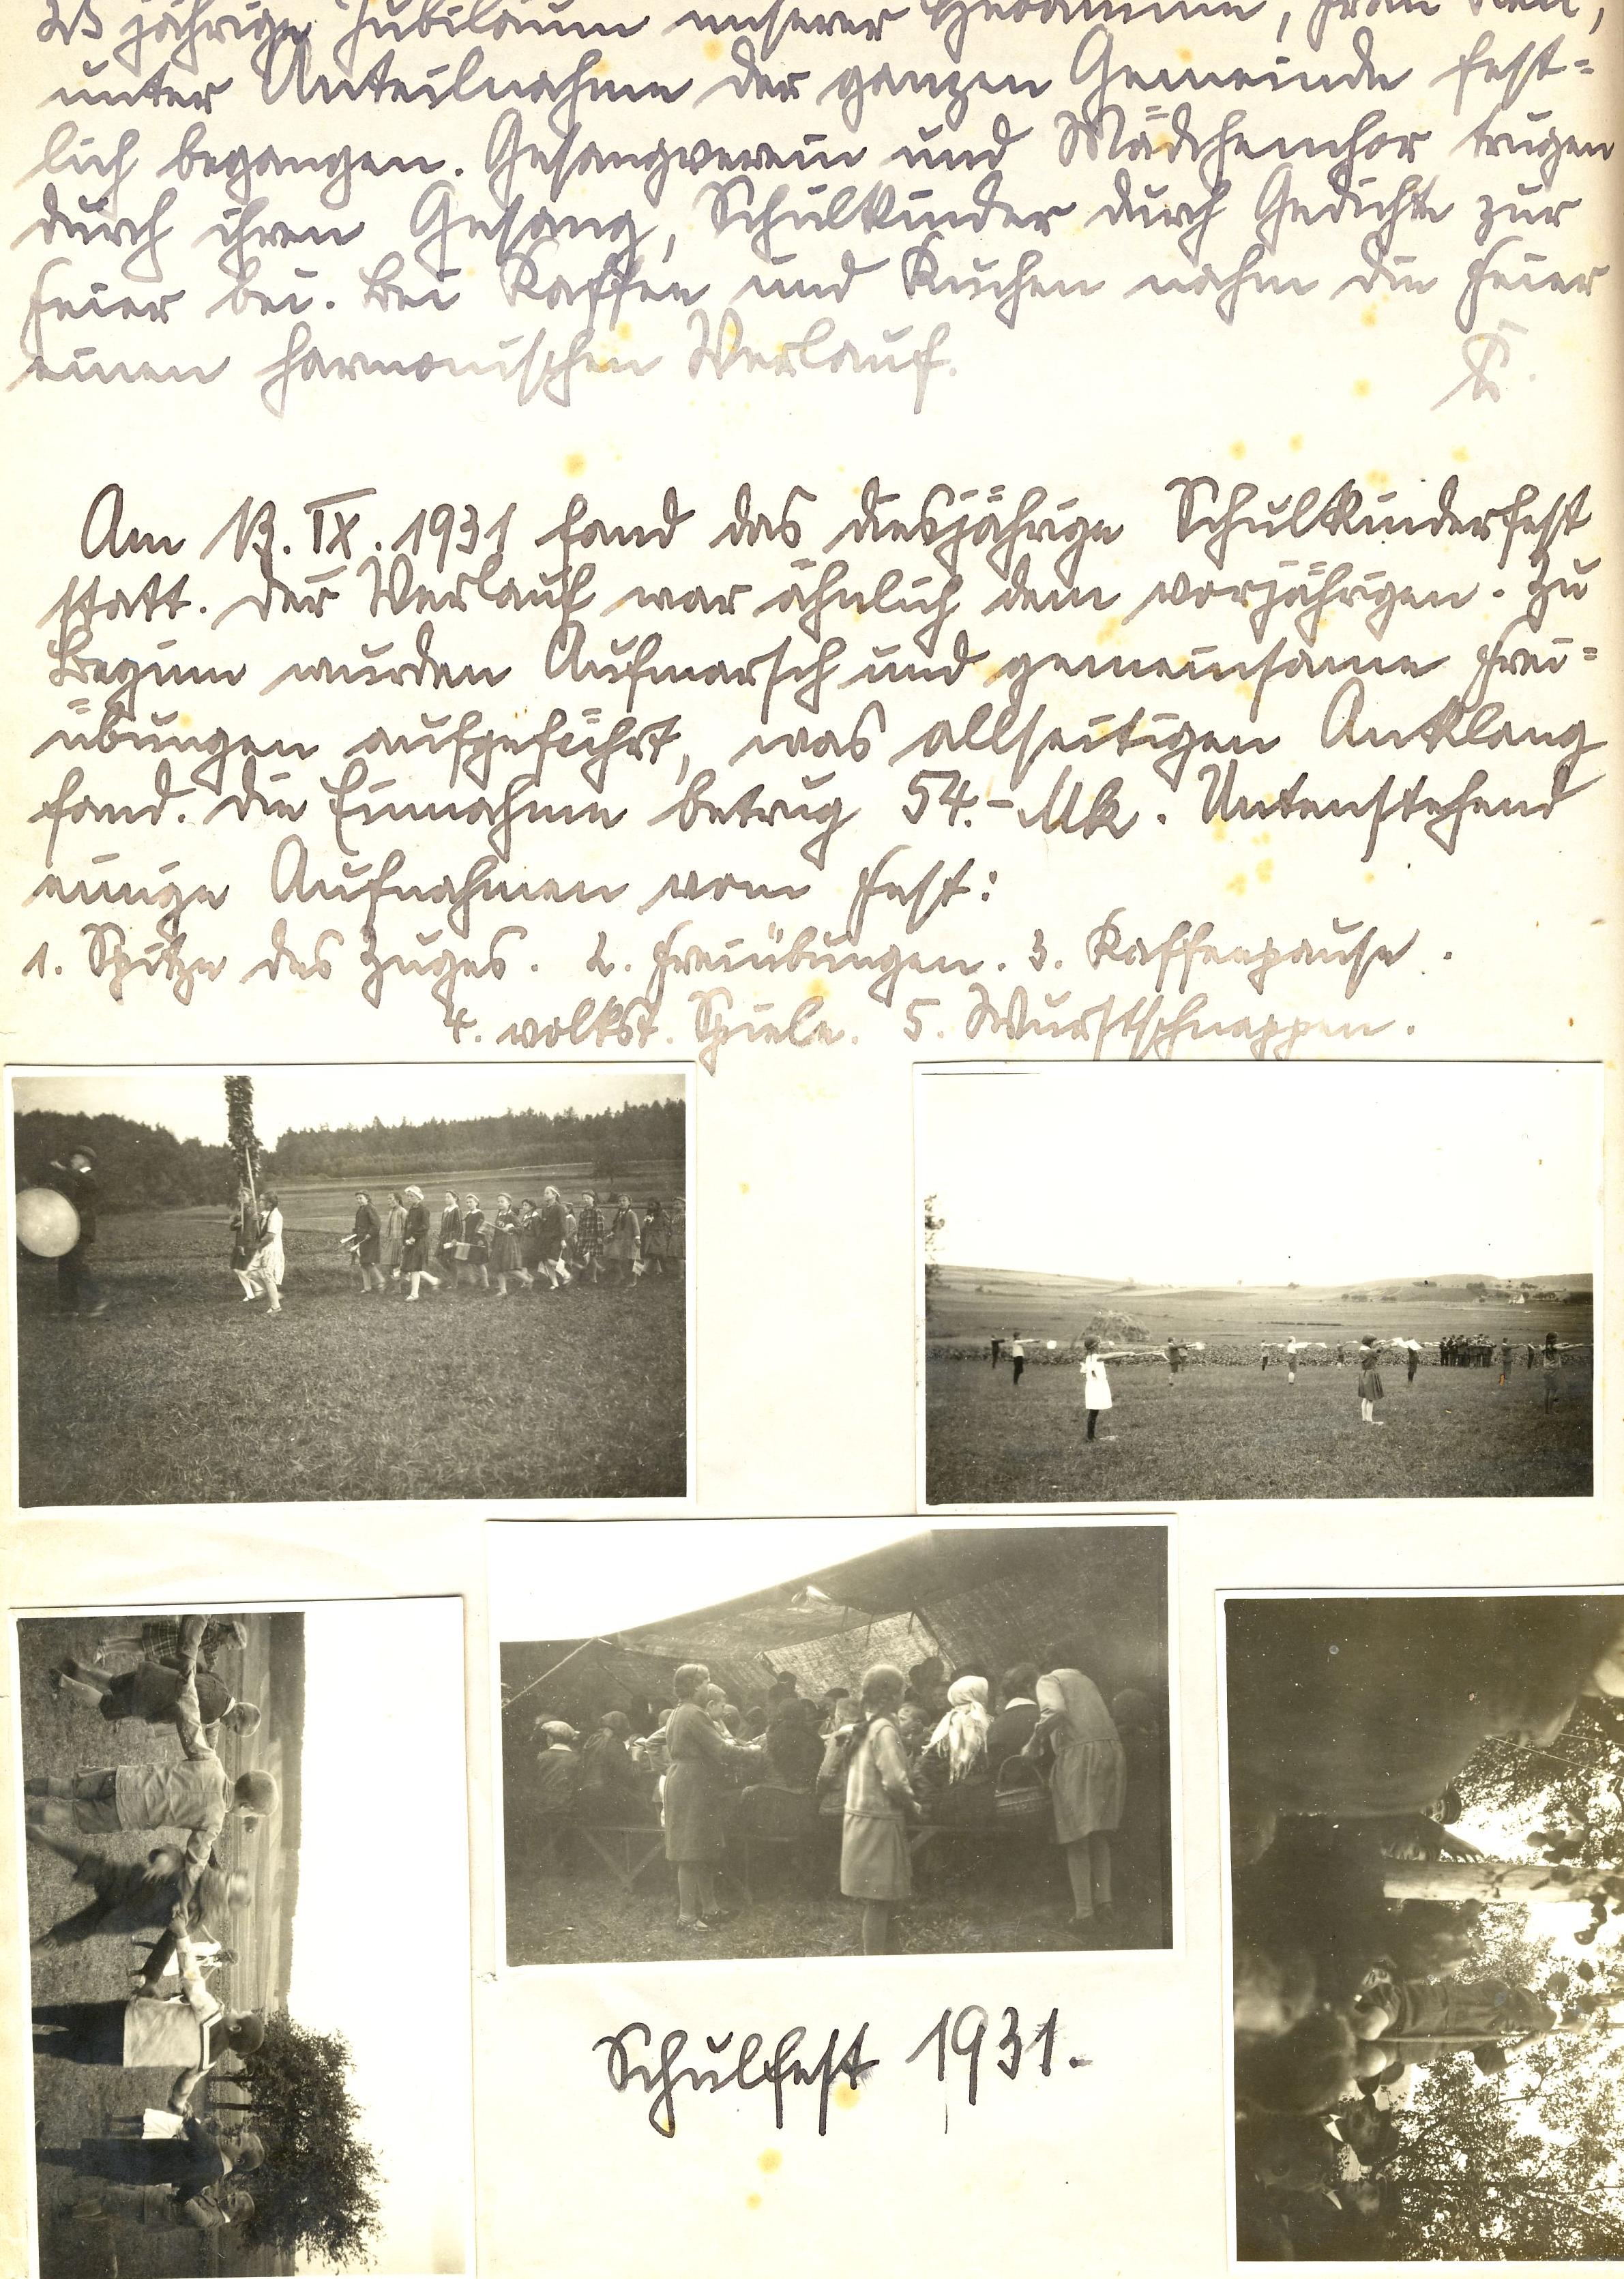 25 jährige Jubiläum unserer Hebamme, Frau
unter Anteilnahme der ganzen Gemeinde fest=
lich begangen. Gesangverein und Mädchenchor trugen
durch ihren Gesang, Schulkinder durch Gedichte zur
Feier bei. Bei Kaffee und Kuchen nahm die Feier
einen harmonischen Verlauf. K.
Am 13. IX. 1931 fand das diesjährige Schulkinderfest
statt. Der Verlauf war ähnlich dem vorjährigen. Zu
Beginn wurden Aufmarsch und gemeinsame Frei=
übungen aufgeführt, was allseitigen Anklang
fand. Die Einnahme betrug 54.- Mk. Untenstehend
einige Aufnahmen vom Fest:
1. Spitze des Zuges. 2. Freiübungen. 3. Kaffeepause.
4. volkst. Spiele. 5. Wurstschnappen.
Schulfest 1931.